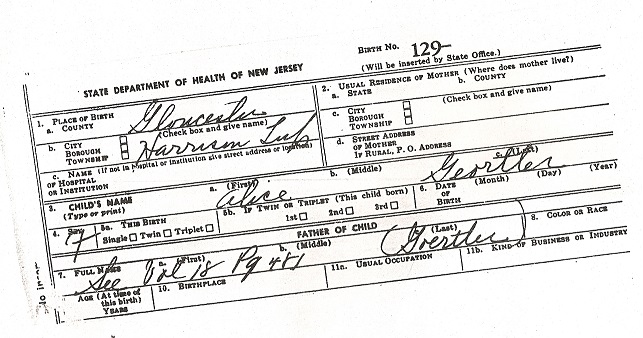 BIRTH NO. 129-
(Will be inserted by State Office.)
STATE DEPARTMENT OF HEALTH OF NEW JERSEY
1. PLACE OF BIRTH
a. COUNTY Gloucester
(Check box and give name)
b. CITY
BOROUGH
TOWNSHIP Harrison Twp
c. NAME (If not in Hospital or Institution give street address or location)
OF HOSPITAL
OR INSTITUTION
2. USUAL RESIDENCE OF MOTHER (Where does mother live?)
a. STATE b. COUNTY
c. CITY (Check box and give name)
BOROUGH
TOWNSHIP
d. STREET ADDRESS
OF MOTHER
IF RURAL, P. O. ADDRESS
3. CHILD'S NAME a. (First) b. (Middle) c. (Last)
(Type or print) Alice Geortler
4. SEX 7
5a. THIS BIRTH
Single Twin Triplet
5b. IF TWIN OR TRIPLET (This child born)
1st 2nd 3rd
6. DATE (Month) (Day) (Year)
OF
BIRTH
FATHER OF CHILD
7. FULL NAME a. (First) b. (Middle) c. (Last)
See Vol 18 Pg 481 (Goertler)
8. COLOR OR RACE
AGE (At time of
this birth)
YEARS
10. BIRTHPLACE
11a. USUAL OCCUPATION
11b. KIND OF BUSINESS OR INDUSTRY